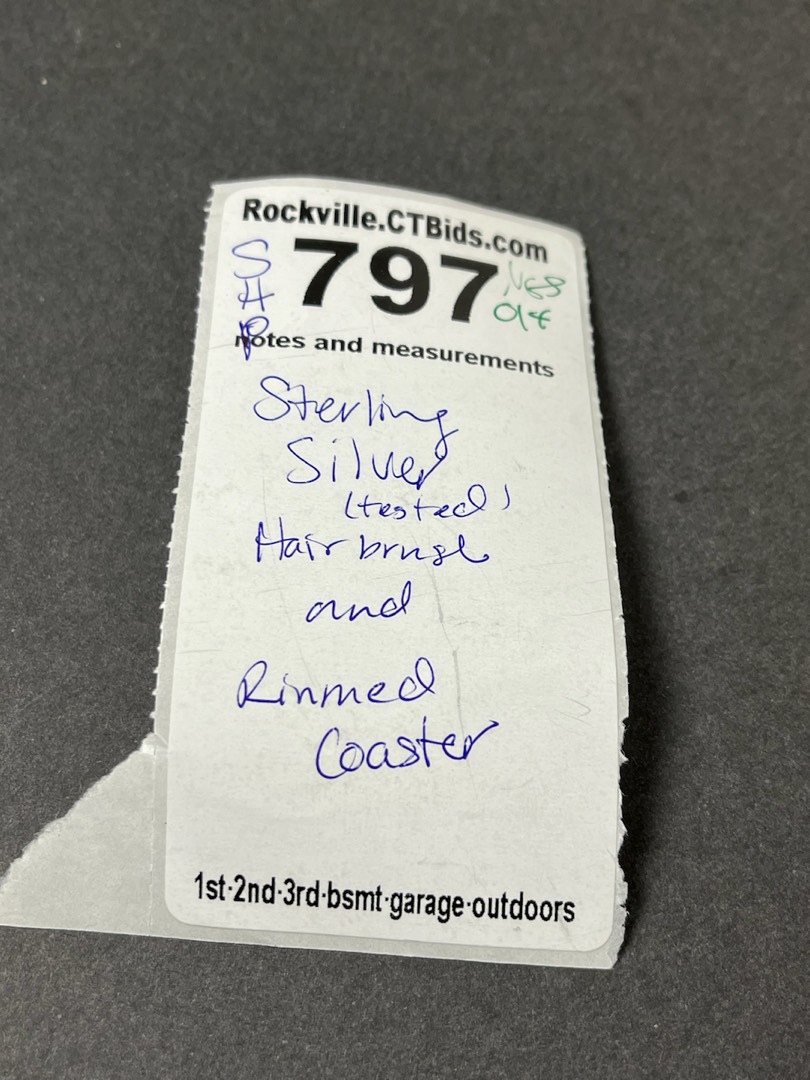 Rockville.CTBids.com
SHP
797
notes and measurements
Sterling
Silver
(tested)
Hairbrush
and
Rinmed
Coaster
1st·2nd·3rd·bsmt·garage·outdoors